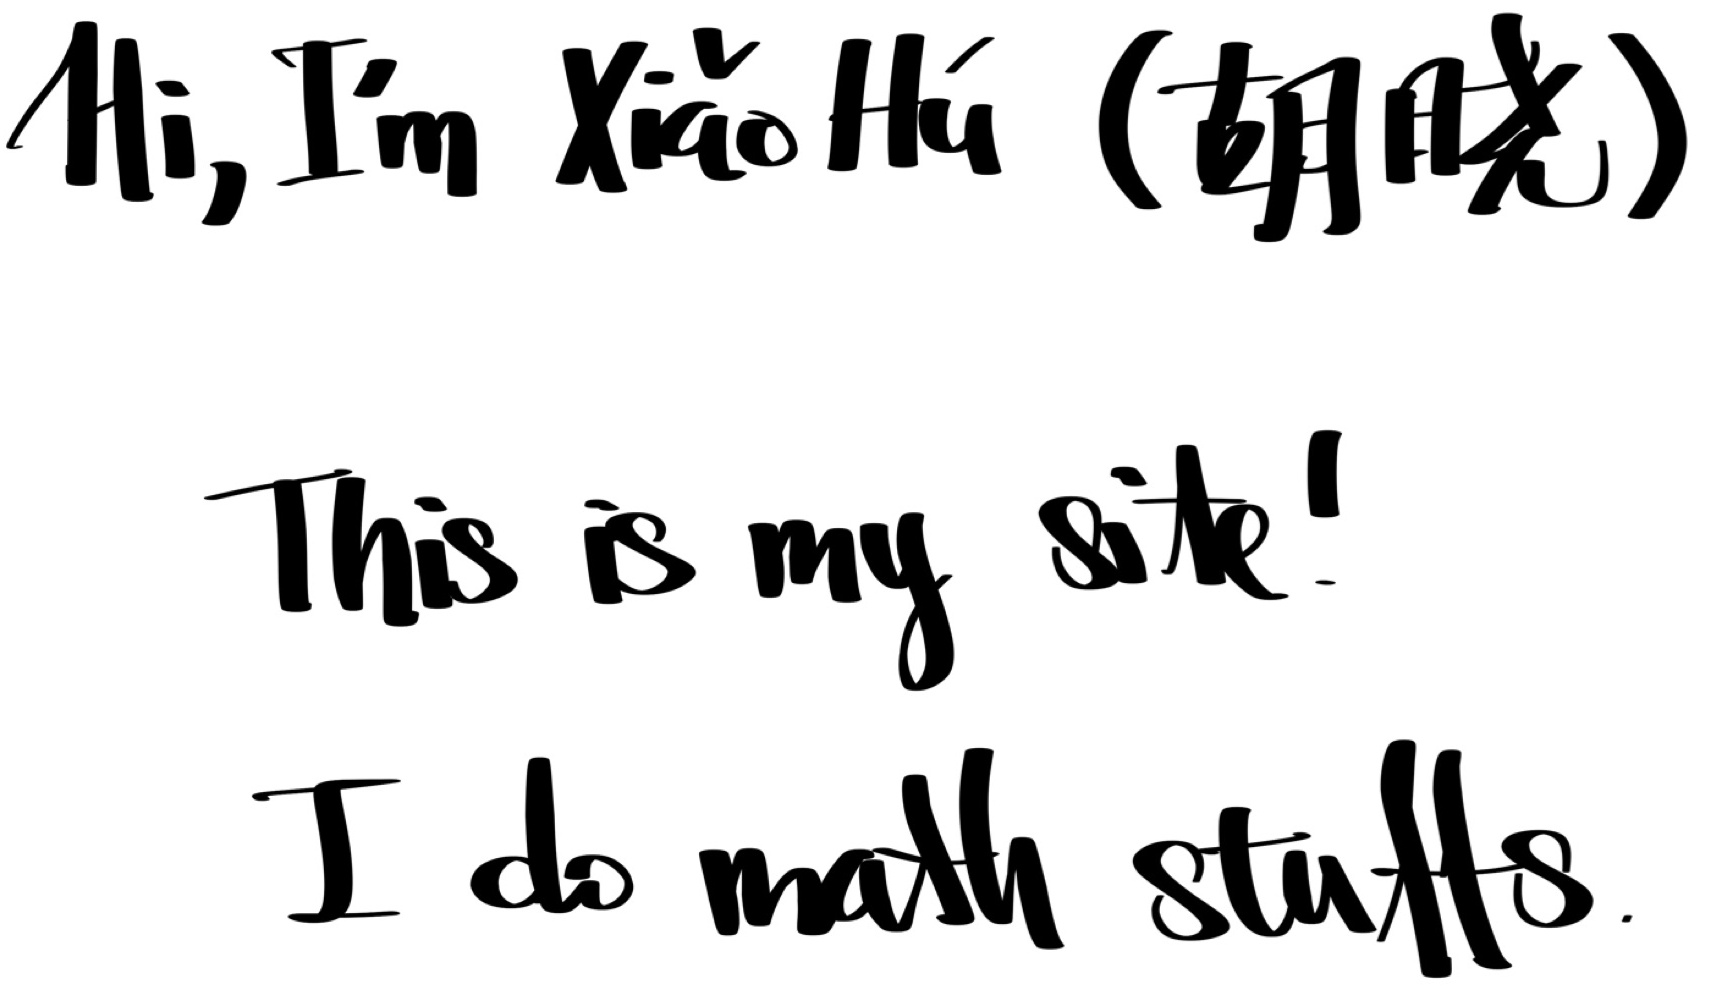 Hi, I'm Xiǎo Hú (胡晓)
This is my site!
I do math stuffs.